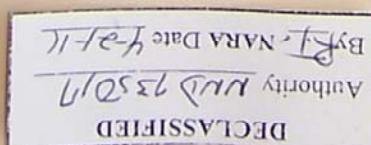 DECLASSIFIED
Authority NND 735017
By RT, NARA Date